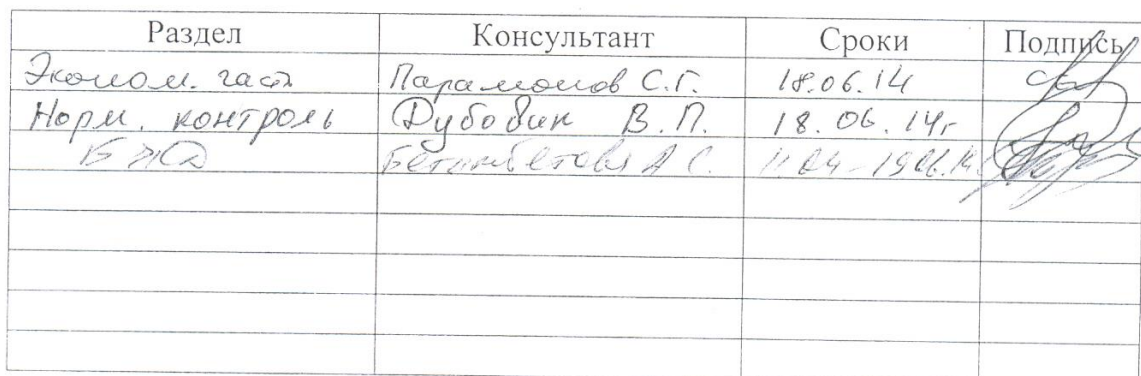 Раздел Консультант Сроки Подпись
Эконом. част Парамонов С.Г. 18.06.14
Норм. контроль Дубовик В.П. 18.06.14г
БЖД А С.